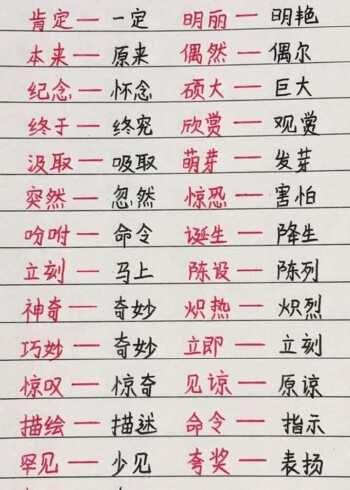 肯定—一定 明丽—明艳
本来—原来 偶然—偶尔
纪念—怀念 硕大—巨大
终于—终究 欣赏—观赏
汲取—吸取 萌芽—发芽
突然—忽然 惊恐—害怕
吩咐—命令 诞生—降生
立刻—马上 陈设—陈列
神奇—奇妙 炽热—炽烈
巧妙—奇妙 立即—立刻
惊叹—惊奇 见谅—原谅
描绘—描述 命令—指示
罕见—少见 夸奖—表扬